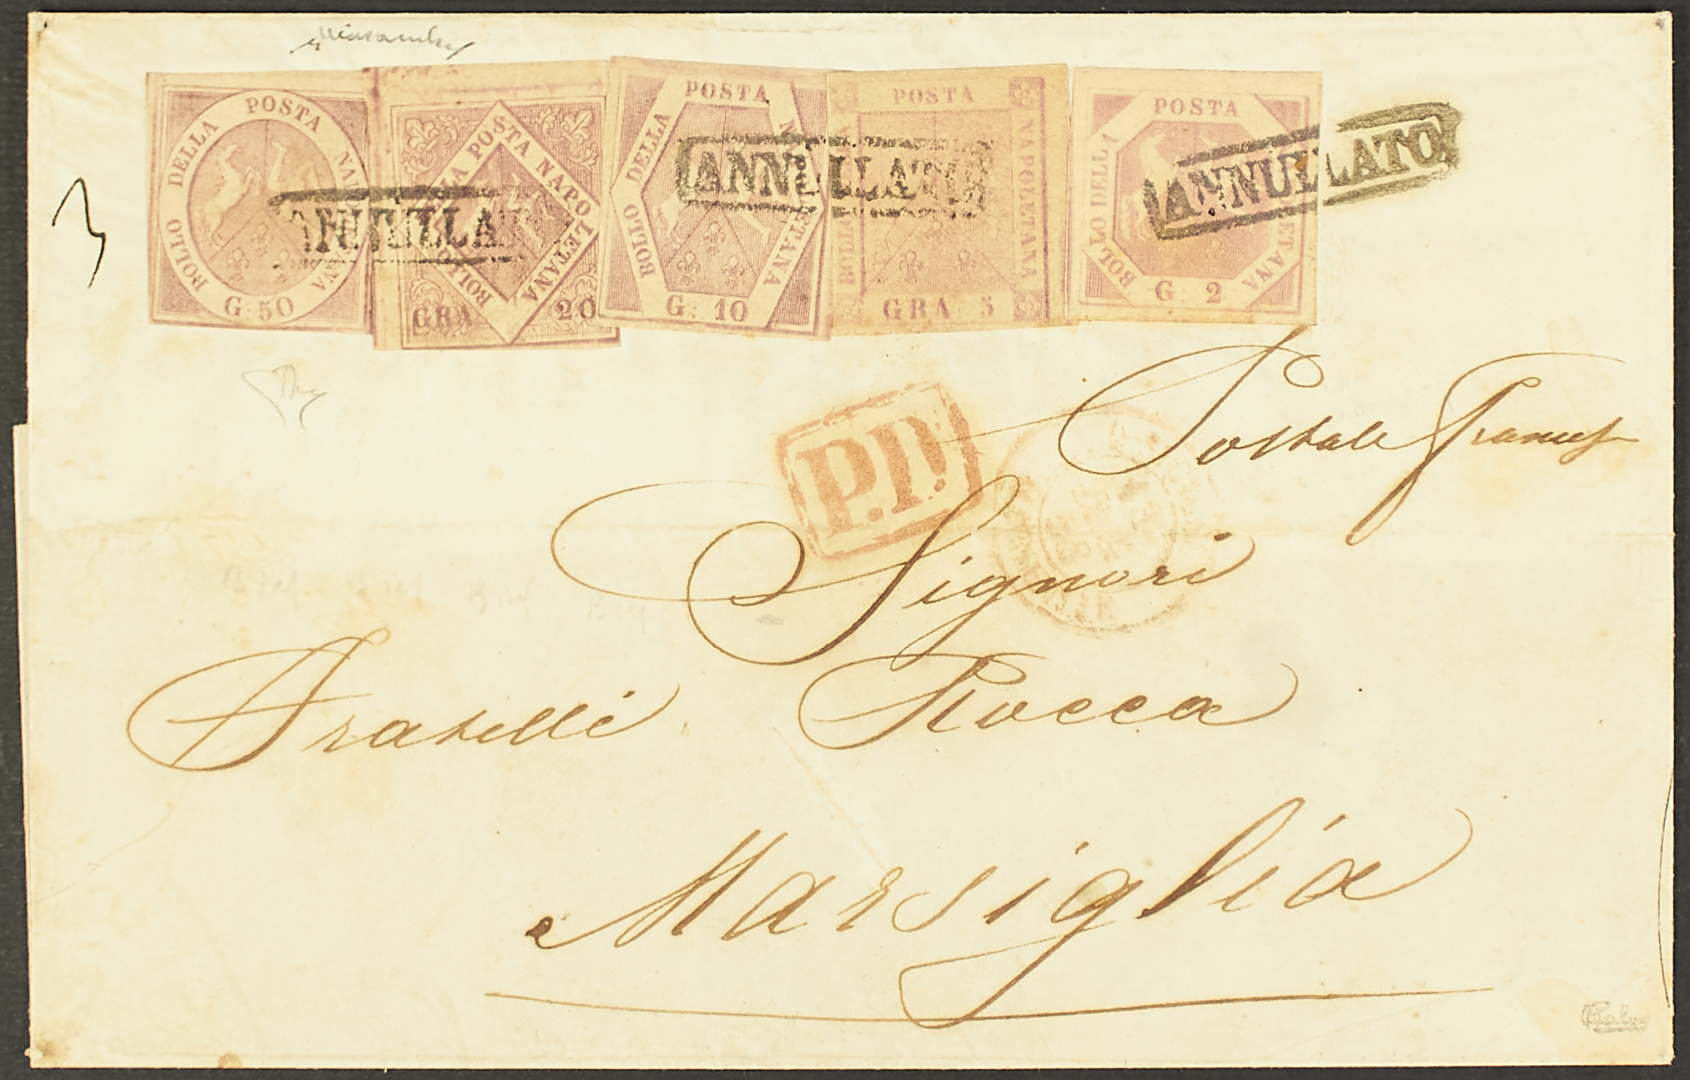 BOLLO DELLA POSTA NAPOLETANA
G. 50
BOLLO DELLA POSTA NAPOLETANA
GRA 20
BOLLO DELLA POSTA NAPOLETANA
G. 10
BOLLO DELLA POSTA NAPOLETANA
GRA 5
BOLLO DELLA POSTA NAPOLETANA
G. 2
ANNULLATO
ANNULLATO
ANNULLATO
3
P.D.
Postale
Signori
Fratelli Rocca
Marsiglia